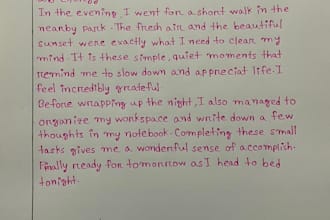 In the evening, I went for a short walk in the
nearby park. The fresh air and the beautiful
sunset were exactly what I need to clear my
mind. It is these simple, quiet moments that
remind me to slow down and appreciat life. I
feel incredibly grateful.
Before wrapping up the night, I also managed to
organize my workspace and write down a few
thoughts in my notebook. Completing these small
tasks gives me a wonderful sense of accomplish.
Finally ready for tomorrow as I head to bed
tonight.